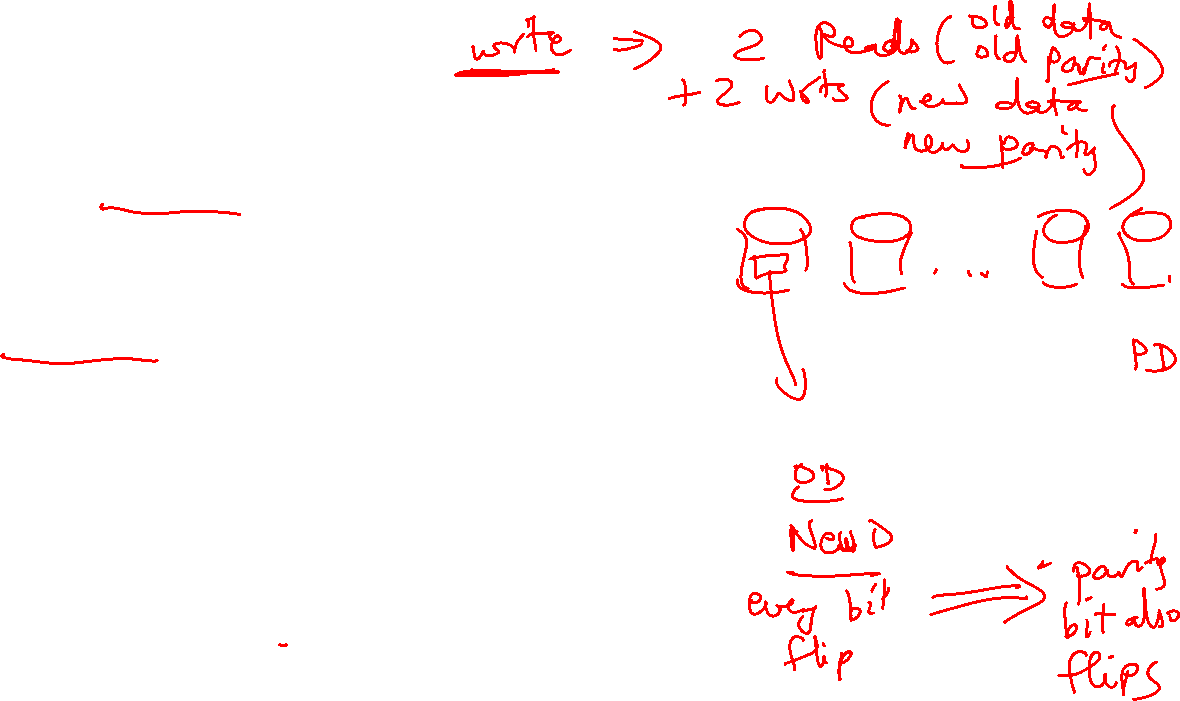 write => 2 Reads (old data
old parity)
+ 2 Writs (new data
new parity
PD
OD
New D
every bit => parity
flip bit also
flips